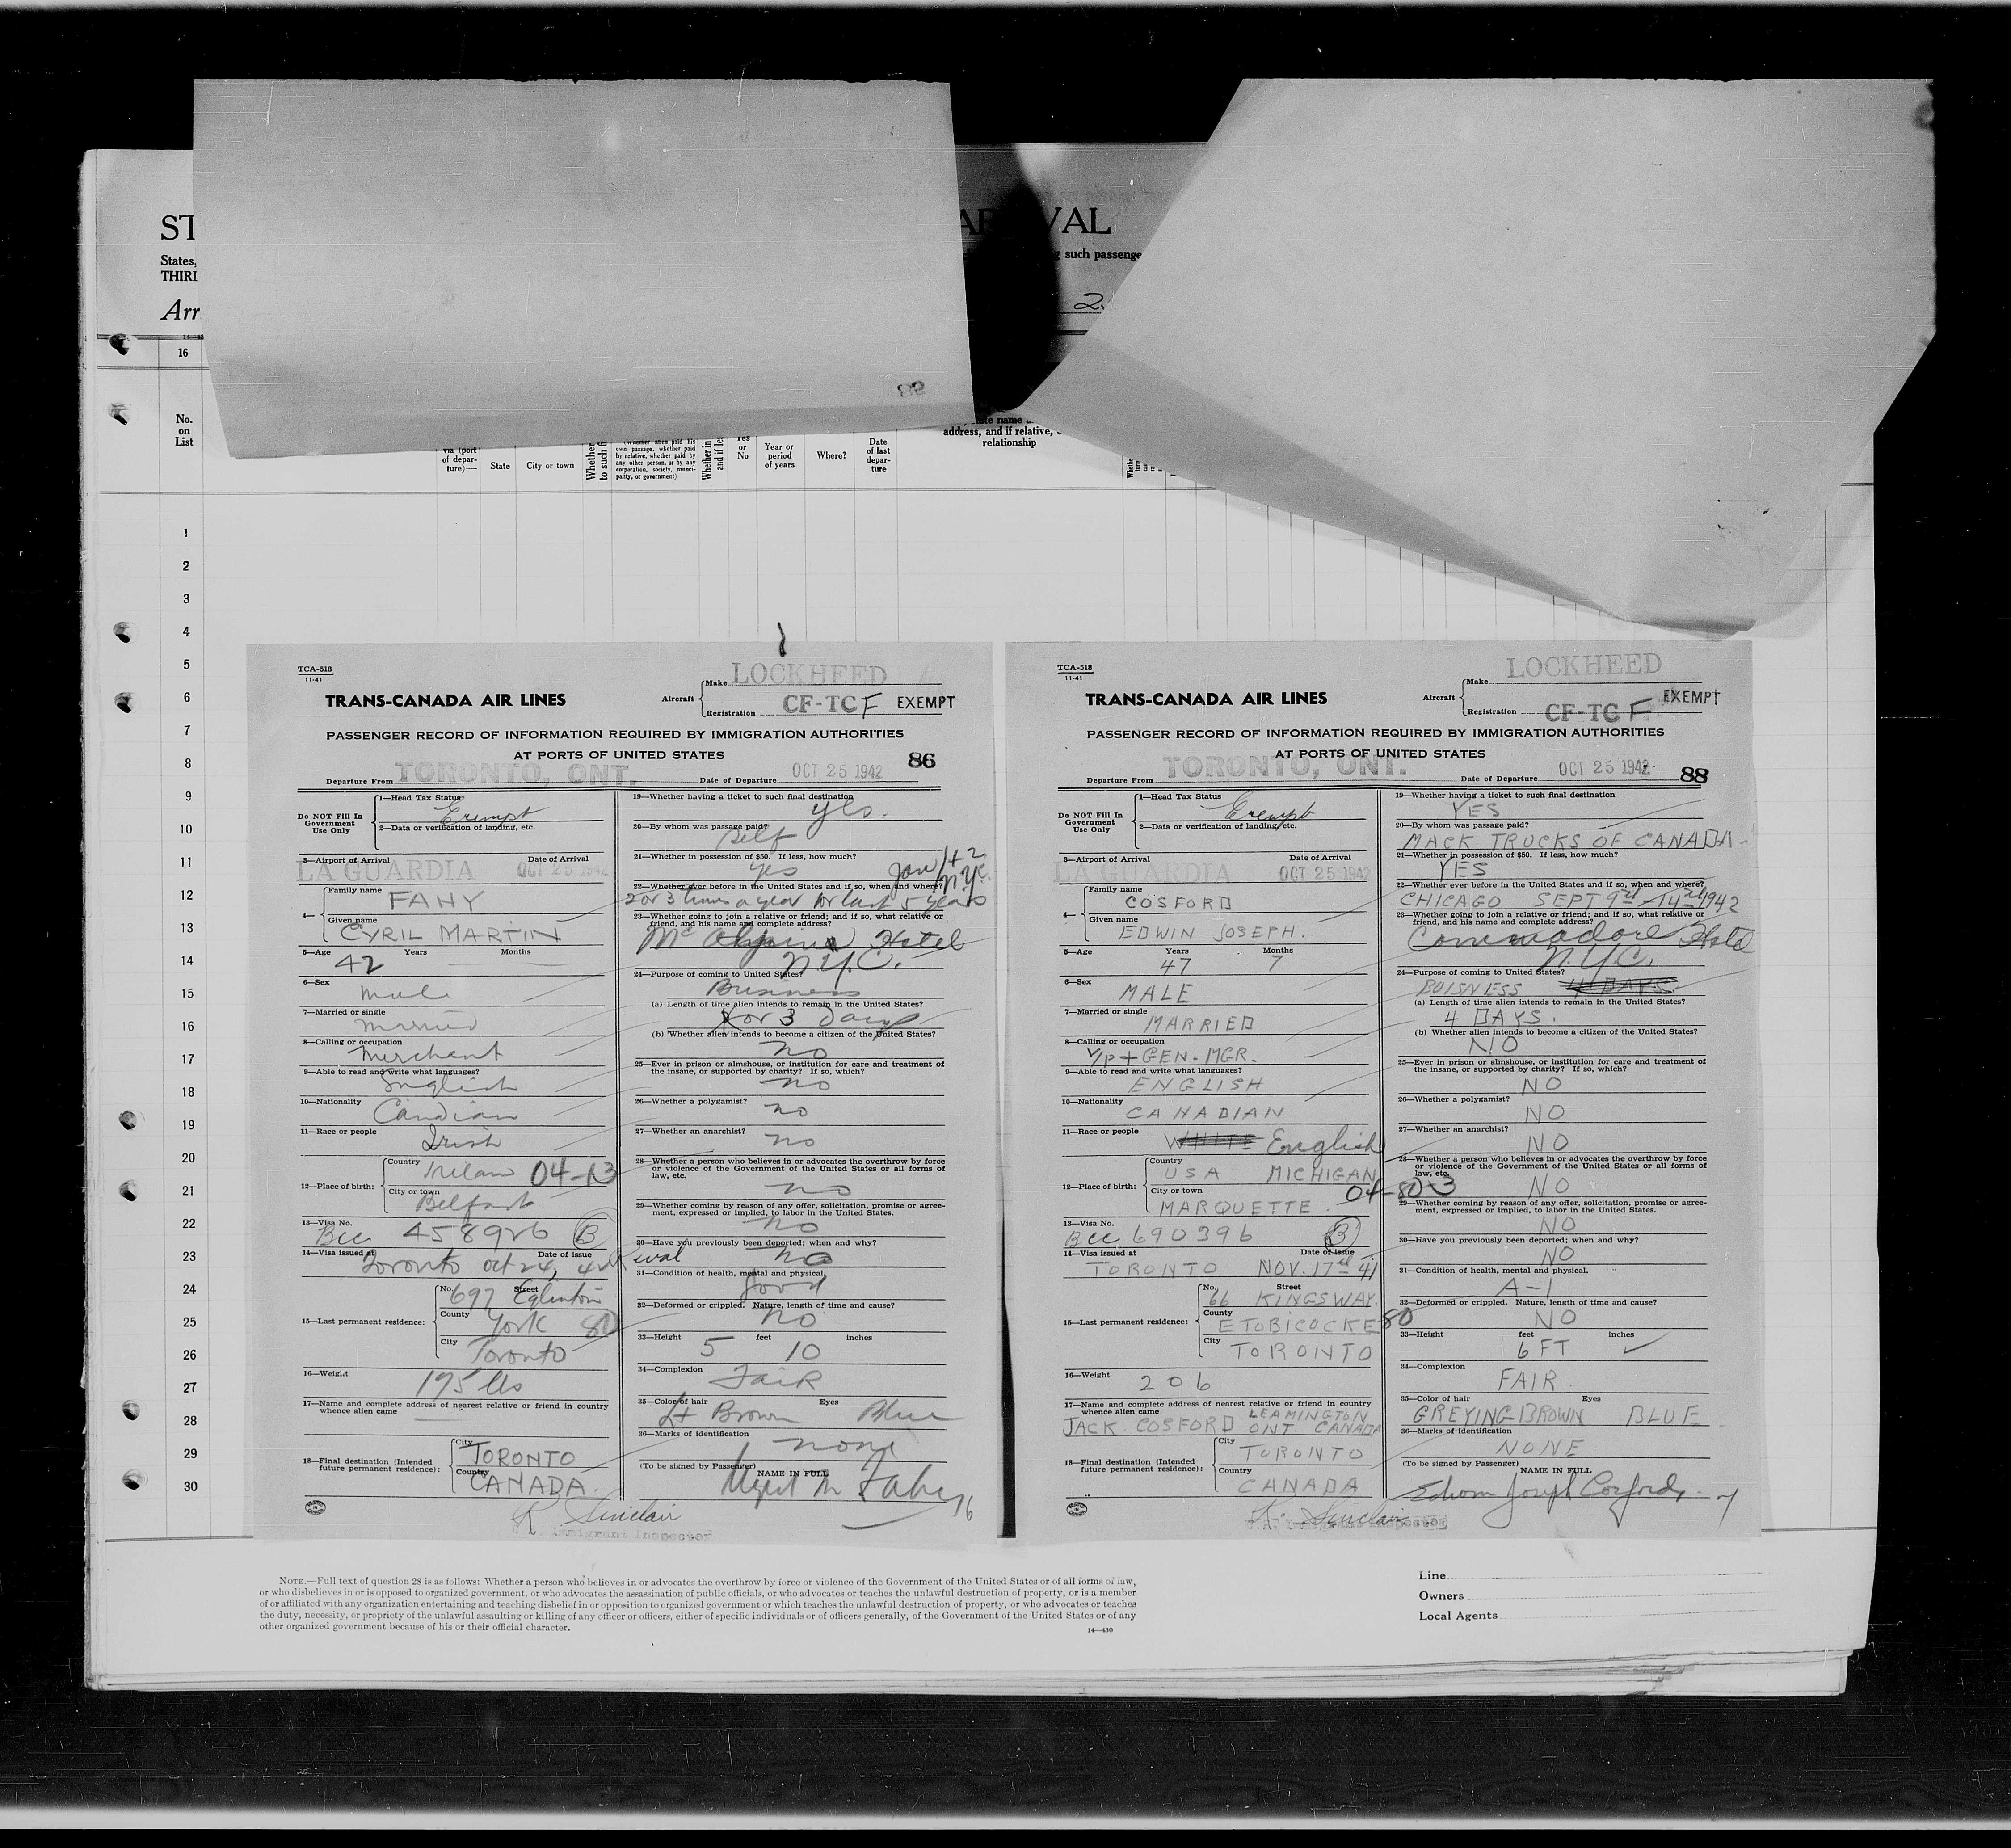 ST
AR
VAL
States,
THIRD
g such passenge
Arr
2
16
No.
on
List
via (port
of depar-
ture)—
State
City or town
Whether
to such fi
(Whether alien paid his
own passage, whether paid
by relative, whether paid by
any other person, or by any
corporation, society, munici-
pality, or government)
Whether in
and if les
Yes
or
No
Year or
period
of years
Where?
Date
of last
depar-
ture
address, and if relative,
relationship
1
2
3
4
5
6
7
8
9
10
11
12
13
14
15
16
17
18
19
20
21
22
23
24
25
26
27
28
29
30
TCA-518
11-41
TRANS-CANADA AIR LINES
Aircraft
Make LOCKHEED
Registration CF-TC F EXEMPT
PASSENGER RECORD OF INFORMATION REQUIRED BY IMMIGRATION AUTHORITIES
AT PORTS OF UNITED STATES
86
Departure From TORONTO, ONT. Date of Departure OCT 25 1942
Do NOT Fill In
Government
Use Only
1—Head Tax Status
Exempt
2—Data or verification of landing, etc.
3—Airport of Arrival Date of Arrival
LA GUARDIA OCT 25 1942
4—
Family name
FAHY
Given name
CYRIL MARTIN
5—Age Years Months
42
6—Sex
Male
7—Married or single
Married
8—Calling or occupation
Merchant
9—Able to read and write what languages?
English
10—Nationality
Candian
11—Race or people
Irish
12—Place of birth:
Country
04-13
City or town
Belfast
13—Visa No.
Bcc 458926 B
14—Visa issued at Date of issue
Toronto Oct 24, 42
15—Last permanent residence:
No. Street
697 Eglinton
County
York 80
City
Toronto
16—Weight
195 lbs
17—Name and complete address of nearest relative or friend in country
whence alien came
18—Final destination (Intended
future permanent residence):
City
TORONTO
Country
CANADA.
R Sinclair
Immigrant Inspector
19—Whether having a ticket to such final destination
yes.
20—By whom was passage paid?
Self
21—Whether in possession of $50. If less, how much?
yes
Jan/42
N.Y.C.
22—Whether ever before in the United States and if so, when and where?
2 or 3 times a year for last 5 years
23—Whether going to join a relative or friend; and if so, what relative or
friend, and his name and complete address?
McAlpin Hotel
N.Y.C.
24—Purpose of coming to United States?
Business
(a) Length of time alien intends to remain in the United States?
or 3 Days
(b) Whether alien intends to become a citizen of the United States?
No
25—Ever in prison or almshouse, or institution for care and treatment of
the insane, or supported by charity? If so, which?
No
26—Whether a polygamist?
No
27—Whether an anarchist?
No
28—Whether a person who believes in or advocates the overthrow by force
or violence of the Government of the United States or all forms of
law, etc.
No
29—Whether coming by reason of any offer, solicitation, promise or agree-
ment, expressed or implied, to labor in the United States.
No
30—Have you previously been deported; when and why?
No
31—Condition of health, mental and physical.
Good
32—Deformed or crippled. Nature, length of time and cause?
No
33—Height feet inches
5 10
34—Complexion
Fair
35—Color of hair Eyes
Lt Brown Blue
36—Marks of identification
none
(To be signed by Passenger)
NAME IN FULL
TCA-518
11-41
TRANS-CANADA AIR LINES
Aircraft
Make LOCKHEED
Registration CF-TC F EXEMPT
PASSENGER RECORD OF INFORMATION REQUIRED BY IMMIGRATION AUTHORITIES
AT PORTS OF UNITED STATES
88
Departure From TORONTO, ONT. Date of Departure OCT 25 1942
Do NOT Fill In
Government
Use Only
1—Head Tax Status
Exempt
2—Data or verification of landing, etc.
3—Airport of Arrival Date of Arrival
LA GUARDIA OCT 25 1942
4—
Family name
COSFORD
Given name
EDWIN JOSEPH.
5—Age Years Months
47 7
6—Sex
MALE
7—Married or single
MARRIED
8—Calling or occupation
V/P + GEN. MGR.
9—Able to read and write what languages?
ENGLISH
10—Nationality
CANADIAN
11—Race or people
WHITE English
12—Place of birth:
Country
USA MICHIGAN
City or town 04-80-3
MARQUETTE.
13—Visa No.
Bcc 690396 B
14—Visa issued at Date of issue
TORONTO NOV. 17th 41
15—Last permanent residence:
No. Street
66 KINGSWAY.
County
ETOBICOCKE 80
City
TORONTO
16—Weight
206
17—Name and complete address of nearest relative or friend in country
whence alien came LEAMINGTON
JACK. COSFORD ONT CANADA
18—Final destination (Intended
future permanent residence):
City
TORONTO
Country
CANADA
R. Sinclair
Immigrant Inspector
19—Whether having a ticket to such final destination
YES
20—By whom was passage paid?
MACK TRUCKS OF CANADA-
21—Whether in possession of $50. If less, how much?
YES
22—Whether ever before in the United States and if so, when and where?
CHICAGO SEPT 9 14 1942
23—Whether going to join a relative or friend; and if so, what relative or
friend, and his name and complete address?
Commadore Hotel
N.Y.C.
24—Purpose of coming to United States?
BUISNESS 4 DAYS.
(a) Length of time alien intends to remain in the United States?
4 DAYS.
(b) Whether alien intends to become a citizen of the United States?
NO
25—Ever in prison or almshouse, or institution for care and treatment of
the insane, or supported by charity? If so, which?
NO
26—Whether a polygamist?
NO
27—Whether an anarchist?
NO
28—Whether a person who believes in or advocates the overthrow by force
or violence of the Government of the United States or all forms of
law, etc.
NO
29—Whether coming by reason of any offer, solicitation, promise or agree-
ment, expressed or implied, to labor in the United States.
NO
30—Have you previously been deported; when and why?
NO
31—Condition of health, mental and physical.
A-1
32—Deformed or crippled. Nature, length of time and cause?
NO
33—Height feet inches
6 FT
34—Complexion
FAIR.
35—Color of hair Eyes
GREYING BROWN BLUE
36—Marks of identification
NONE
(To be signed by Passenger)
NAME IN FULL
Edwin Joseph Cosford,
NOTE.—Full text of question 28 is as follows: Whether a person who believes in or advocates the overthrow by force or violence of the Government of the United States or of all forms of law,
or who disbelieves in or is opposed to organized government, or who advocates the assassination of public officials, or who advocates or teaches the unlawful destruction of property, or is a member
of or affiliated with any organization entertaining and teaching disbelief in or opposition to organized government or which teaches the unlawful destruction of property, or who advocates or teaches
the duty, necessity, or propriety of the unlawful assaulting or killing of any officer or officers, either of specific individuals or of officers generally, of the Government of the United States or of any
other organized government because of his or their official character.
14—430
Line
Owners
Local Agents